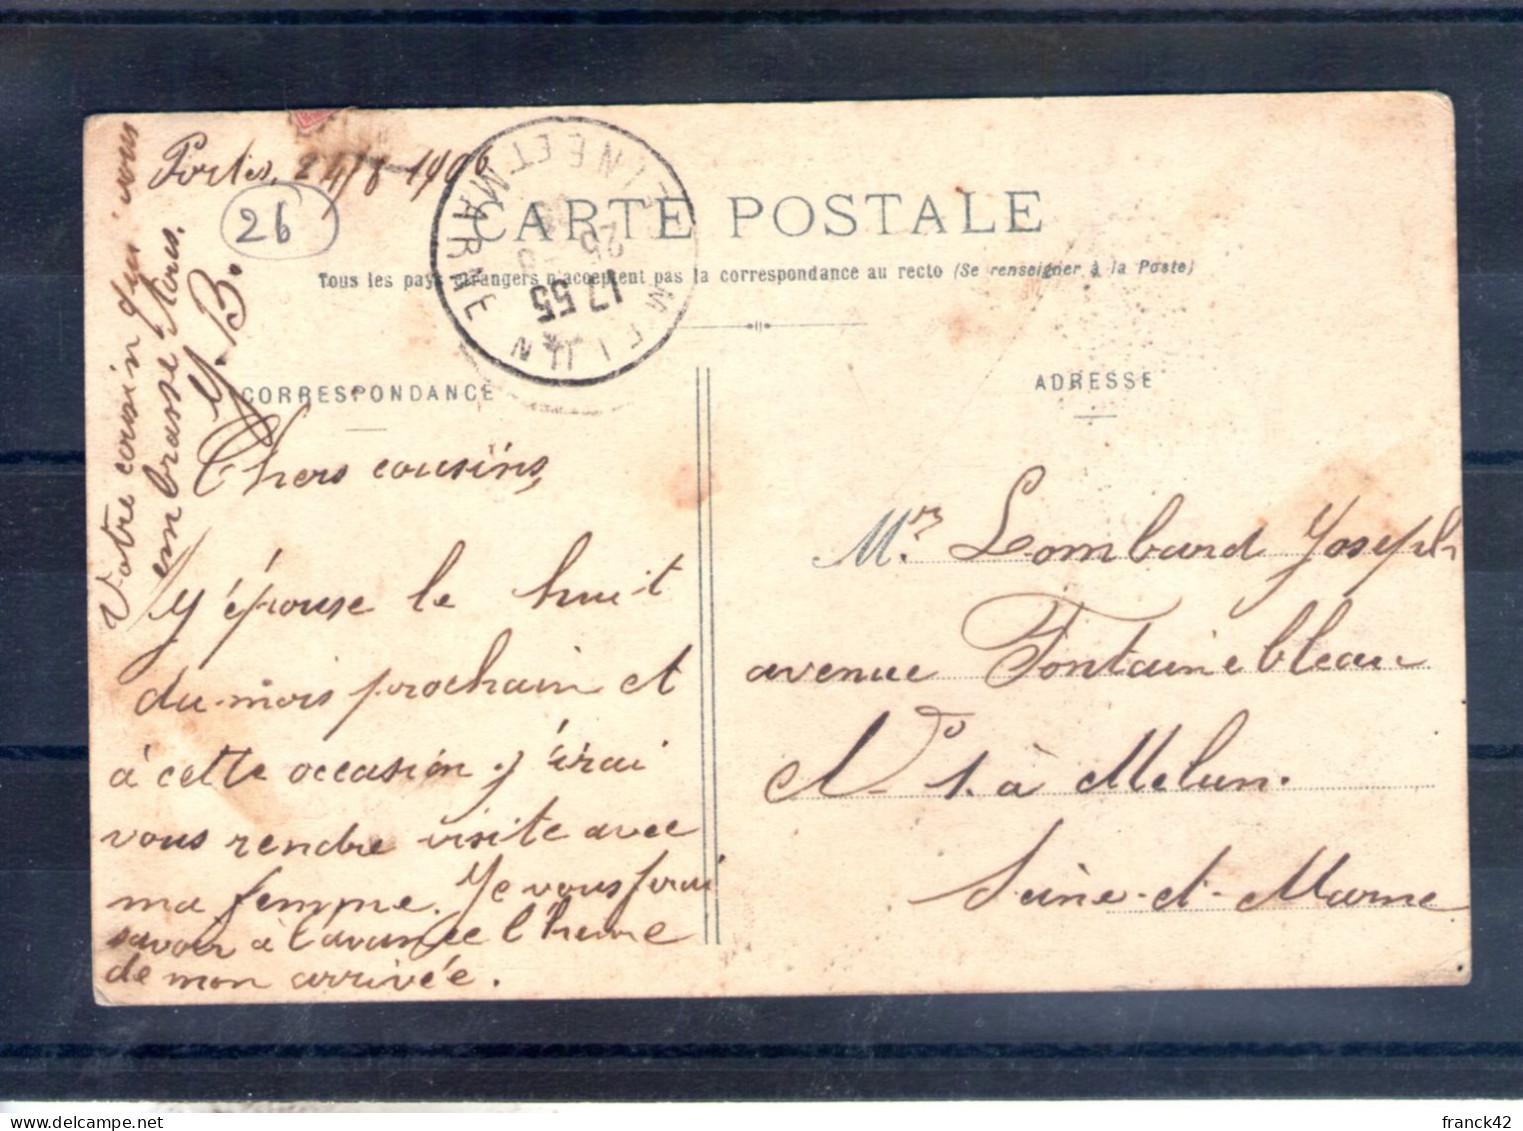 Portes, 24/8-1906
26
CARTE POSTALE
Tous les pays étrangers n'acceptent pas la correspondance au recto (Se renseigner à la Poste)
MELUN
SEINE ET MARNE
17 55
25 - 8
CORRESPONDANCE
Chers cousins,
J'épouse le huit
du mois prochain et
à cette occasion j'irai
vous rendre visite avec
ma femme. Je vous ferai
savoir à l'avance l'heure
de mon arrivée.
Votre cousin qui vous
embrasse tous.
Y. B.
ADRESSE
Mr Lombard Joseph
avenue Fontainebleau
No 1. à Melun.
Seine-et-Marne
franck42